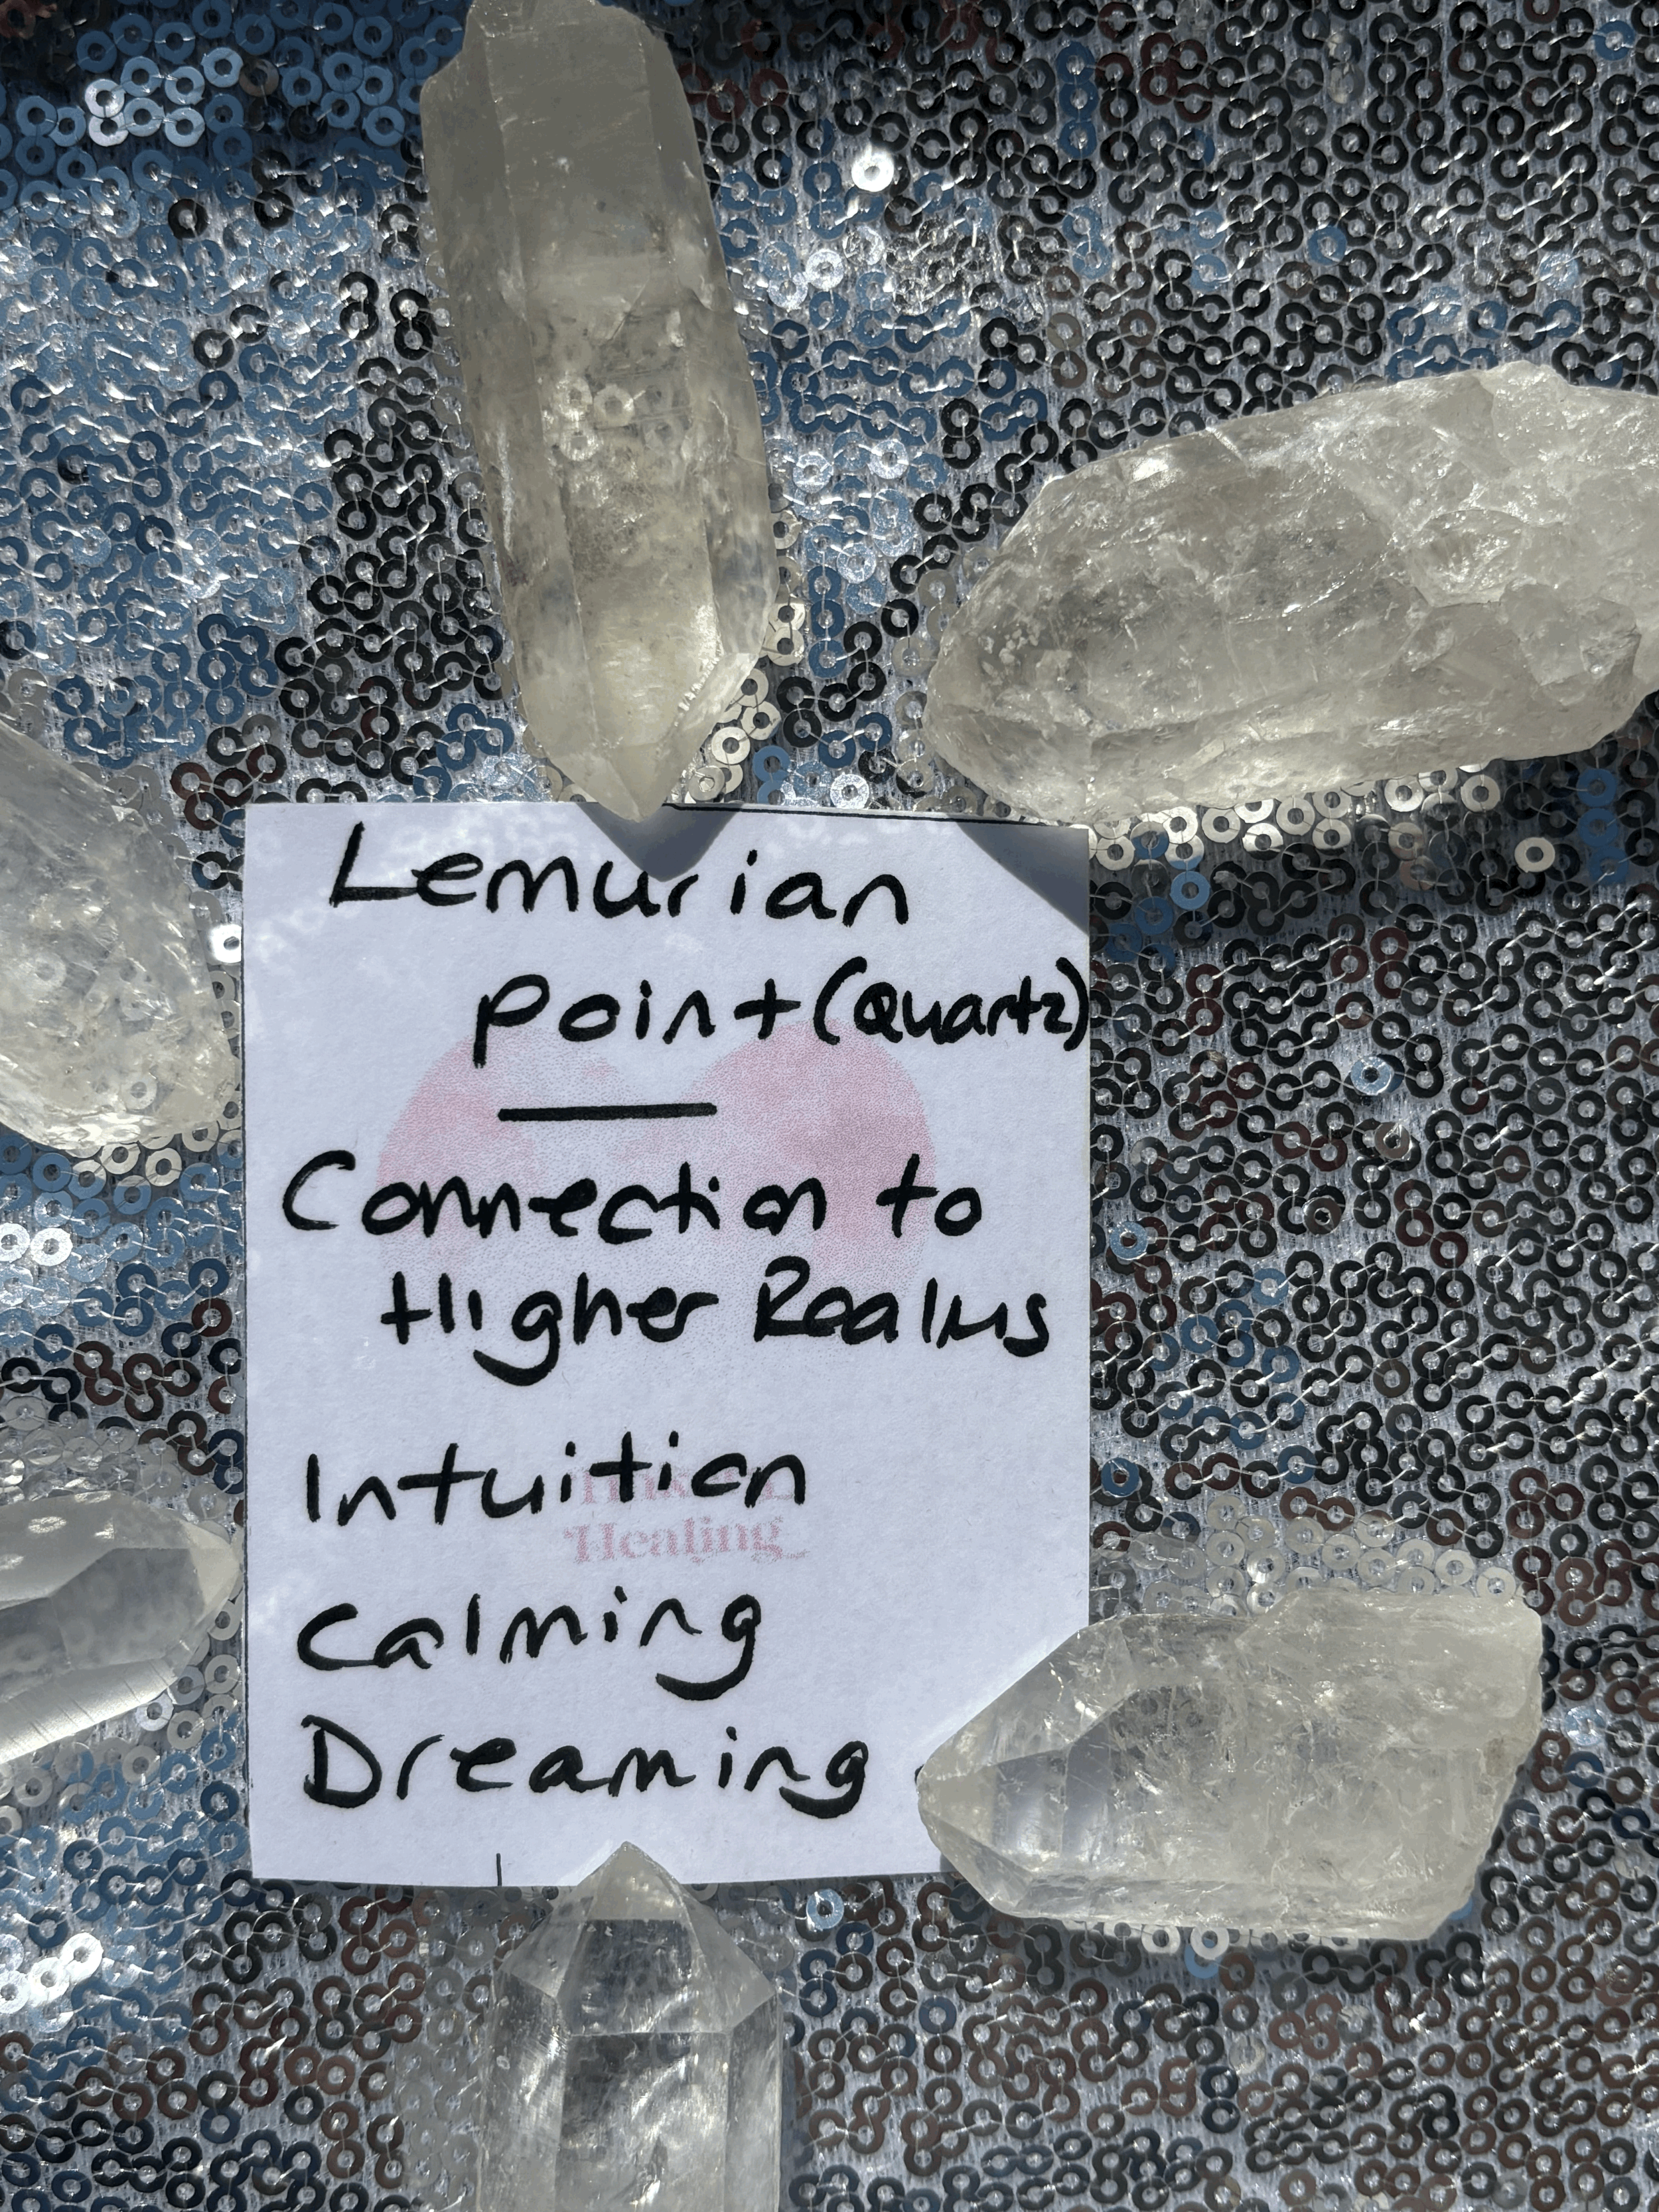 Lemurian
Point (Quartz)
Connection to
Higher Realms
Intuition
Healing
Calming
Dreaming